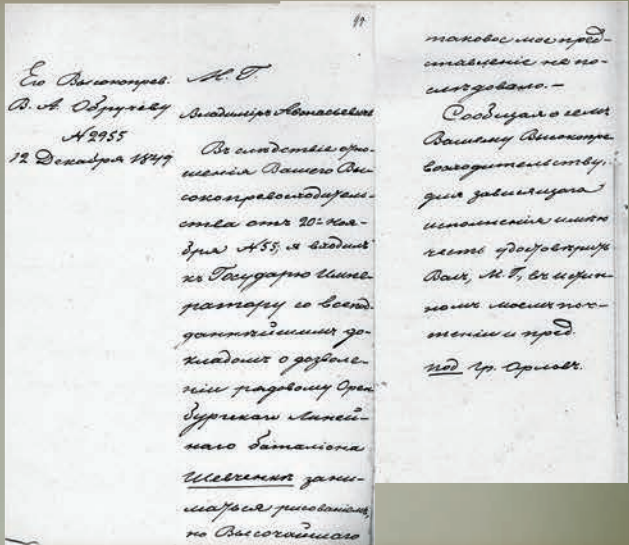 97
Его Высокопрев.
В. А. Обручеву
№2955
12 Декабря 1849
М. Г.
Владимиръ Афанасьевичъ
Въ слѣдствіе отно-
шенія Вашего Вы-
сокопревосходитель-
ства отъ 20го ноя-
бря №55, я входилъ
къ Государю Импе-
ратору со всепод-
даннѣйшимъ до-
кладомъ о дозволе-
ніи рядовому Орен-
бургскаго Линей-
наго баталіона
Шевченкѣ зани-
маться рисованіемъ,
но Высочайшаго
таковое мое пред-
ставленіе не по-
слѣдовало. —
Сообщая о семъ
Вашему Высокопре-
восходительству,
для зависящаго
исполненія имѣю
честь удостовѣрить
Васъ, М. Г., въ истин-
номъ моемъ поч-
теніи и пред.
под гр. Орловъ.